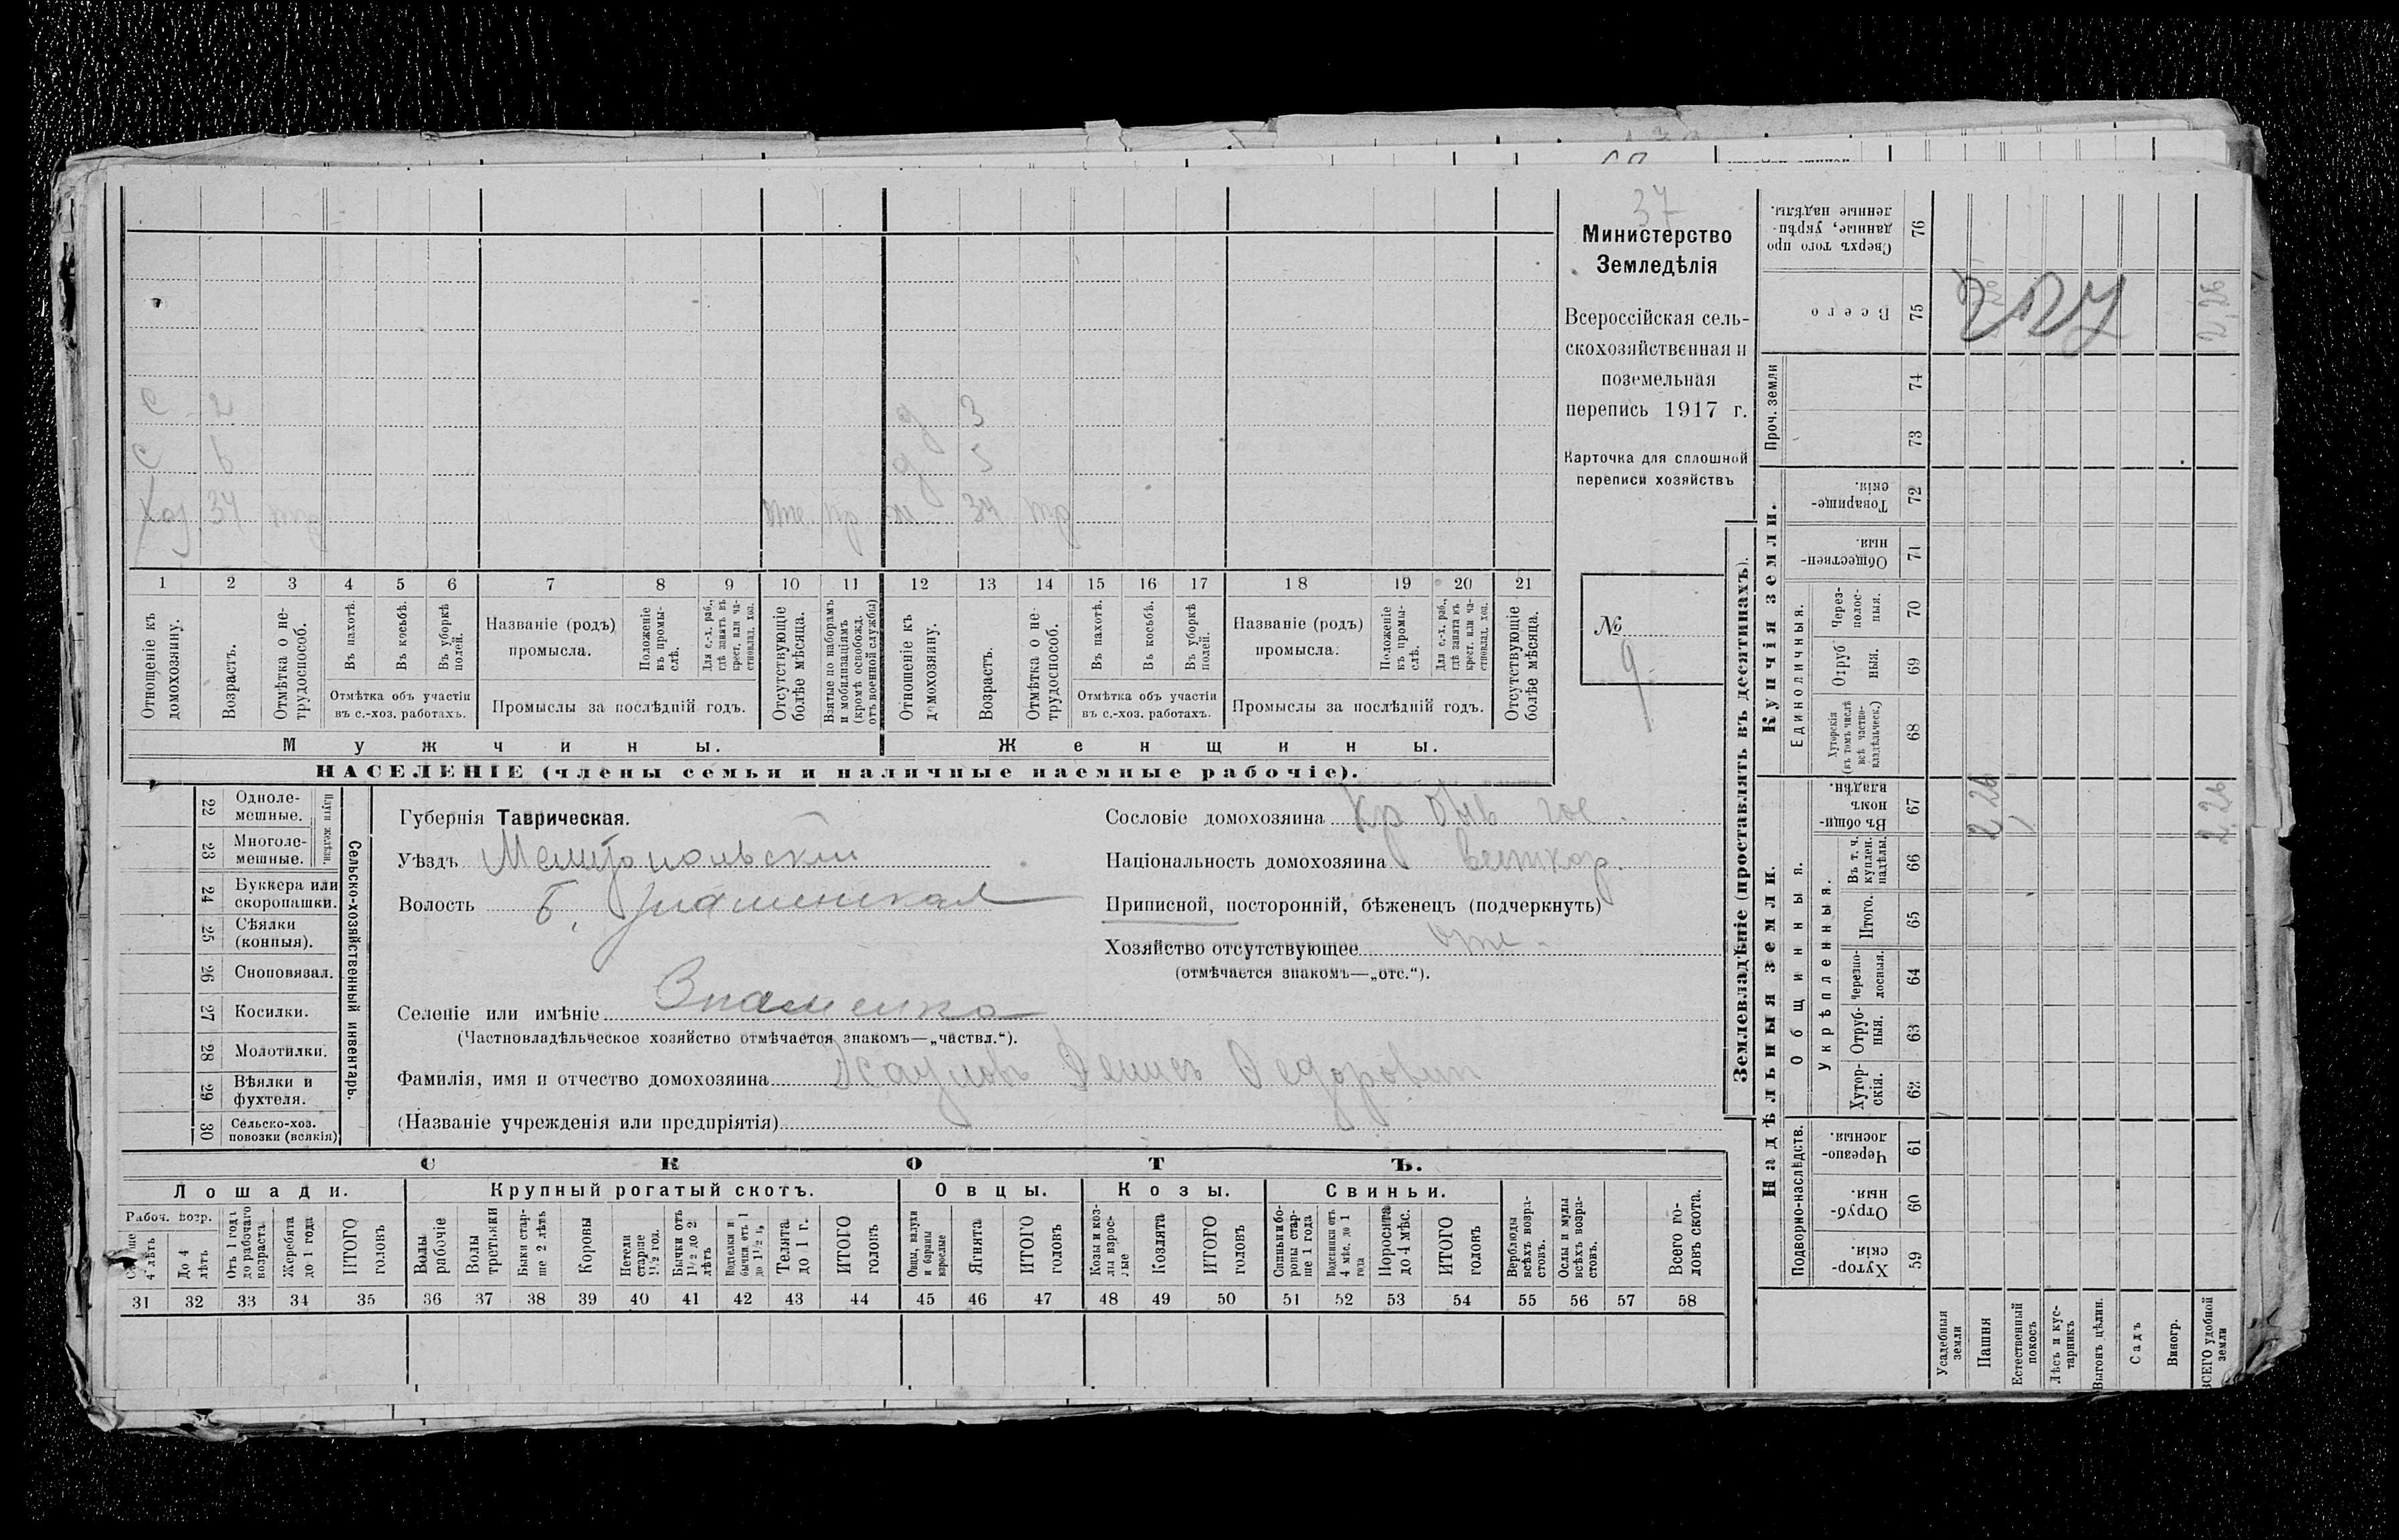 37
Министерство
Земледѣлія
Всероссійская сель-
скохозяйственная и
поземельная
перепись 1917 г.
Карточка для сплошной
переписи хозяйствъ
№
9
с 2 д 3
с 6 д 5
Хоз. 34 отс. 34
1 2 3 4 5 6 7 8 9 10 11 12 13 14 15 16 17 18 19 20 21
Отношеніе къ домохозяину.
Возрастъ.
Отмѣтка о не-трудоспособ.
Въ пахотѣ.
Въ косьбѣ.
Въ уборкѣ полей.
Отмѣтка объ участіи
въ с.-хоз. работахъ.
Названіе (родъ)
промысла.
Положеніе въ промы-слѣ.
Для с.-х. раб., гдѣ занятъ въ крест. или ча-стновлад. хоз.
Промыслы за послѣдній годъ.
Отсутствующіе болѣе мѣсяца.
Взятые по наборамъ и мобилизаціямъ (кромѣ освобожд. отъ военной службы)
Отношеніе къ домохозяину.
Возрастъ.
Отмѣтка о не-трудоспособ.
Въ пахотѣ.
Въ косьбѣ.
Въ уборкѣ полей.
Отмѣтка объ участіи
въ с.-хоз. работахъ.
Названіе (родъ)
промысла.
Положеніе къ промы-слѣ.
Для с.-х. раб., гдѣ занята въ крест. или ча-стновлад. хоз.
Промыслы за послѣдній годъ.
Отсутствующіе болѣе мѣсяца.
Мужчины. Женщины.
НАСЕЛЕНІЕ (члены семьи и наличные наемные рабочіе).
Сельско-хозяйственный инвентарь.
Плуги желѣзн.
22 Одноле-мешные.
23 Многоле-мешные.
24 Буккера или скоропашки.
25 Сѣялки (конныя).
26 Сноповязал.
27 Косилки.
28 Молотилки.
29 Вѣялки и фухтеля.
30 Сельско-хоз. повозки (всякія)
Губернія Таврическая.
Уѣздъ Мелитопольскій
Волость Б. Знаменская
Селеніе или имѣніе Знаменка
(Частновладѣльческое хозяйство отмѣчается знакомъ—„частвл.“).
Фамилія, имя и отчество домохозяина Эсауловъ Денисъ Федорович
(Названіе учрежденія или предпріятія)
Сословіе домохозяина кр быв гос.
Національность домохозяина великор.
Приписной, посторонній, бѣженецъ (подчеркнуть)
Хозяйство отсутствующее отс.
(отмѣчается знакомъ—„отс.“).
СКОТЪ.
Лошади. Крупный рогатый скотъ. Овцы. Козы. Свиньи.
Рабоч. возр.
4 лѣтъ
До 4 лѣтъ
Отъ 1 года до рабочаго возраста
Жеребята до 1 года
ИТОГО головъ
Волы рабочіе
Волы третьяки
Быки стар-ше 2 лѣтъ
Коровы
Нетели старше 1½ год.
Бычки отъ 1½ до 2 лѣтъ
Подтелки и бычки отъ 1 до 1½ г.
Телята до 1 г.
ИТОГО головъ
Овцы, валухи и бараны взрослые
Ягнята
ИТОГО головъ
Козы и коз-лы взрос-лые
Козлята
ИТОГО головъ
Свиньи и бо-ровы стар-ше 1 года
Подсвинки отъ 4 мѣс. до 1 года
Поросята до 4 мѣс.
ИТОГО головъ
Верблюды всѣхъ возра-стовъ.
Ослы и мулы всѣхъ возра-стовъ.
Всего го-ловъ скота.
31 32 33 34 35 36 37 38 39 40 41 42 43 44 45 46 47 48 49 50 51 52 53 54 55 56 57 58
Землевладѣніе (проставлять въ десятинахъ).
Купчія земли.
Надѣльныя земли.
Сверхъ того про данные, укрѣп-ленные надѣлы. 76
Всего 75 2,26
Проч. земли 74 73
Товарище-скія. 72
Обществен-ныя. 71
Единоличныя.
Через-полос-ныя. 70
Отруб ныя. 69
Хуторскія (въ томъ числѣ всѣ частно-владѣльческ.) 68
Общинныя.
Въ общи-номъ владѣн. 67 2,26 2,26
Укрѣпленныя.
Въ т. ч. куплен. надѣлы. 66
Итого. 65
Черезпо-лосныя. 64
Отруб-ныя. 63
Хутор-скія. 62
Подворно-наслѣдств.
Черезпо-лосныя. 61
Отруб-ныя. 60
Хутор-скія. 59
Усадебныя земли
Пашня
Естественный покосъ
Лѣсъ и кус-тарникъ
Выгонъ цѣлин.
Садъ
Виногр.
ВСЕГО удобной земли